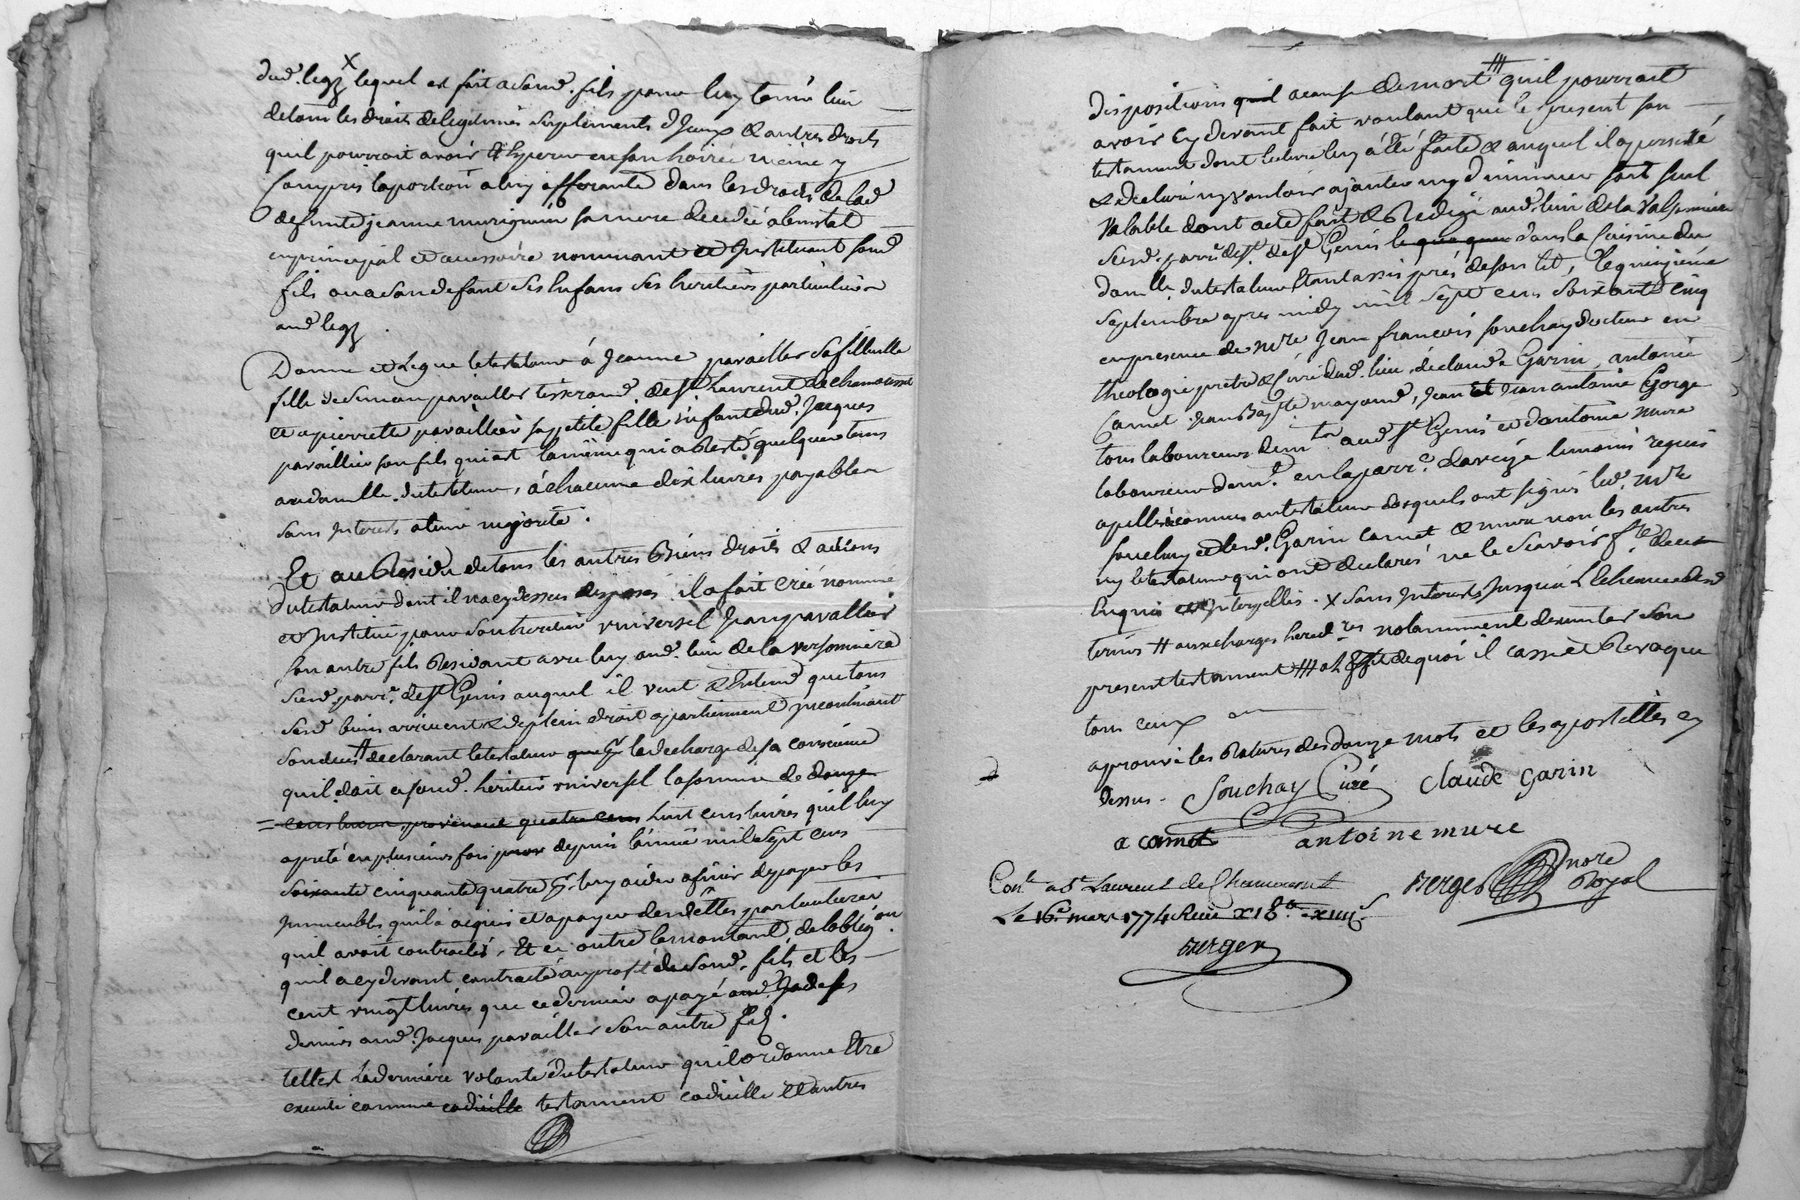 dud. legz x lequel est fait a sond. fils pour luy tenir lieu
de tous les droits de legitimes suplements d'Jceux & autres droits
quil pourroit avoir & esperer en son hoirie meme y
compris la portion a luy afferante dans les droits de lad
defunte jeanne murigneu sa mere decedée abintestat
en principal et accessoire nommant et Jnstituant sond
fils ou a son defaut ses Enfans ses heritiers particuliers
aud legz
Donne et Legue le testateur à Jeanne pavailler sa filleulle
fille de Simon pavailler tisserand de St Laurent de chamousset
et a pierrette pavaillier sa petite fille Enfant dud. Jacques
pavaillier son fils qui est la même qui a Resté quelques tems
au domlle. du testateur, à chacune dix livres payables
sans Jnterets a leur majorité.
Et au Residu de tous les autres Biens droits & actions
du testateur dont il n'a cy dessus disposé il a fait créé nommé
et Jnstitué pour son heritier universel Jean pavallier
son autre fils Residant avec luy aud. lieu de la versonniere
susd. parr.e de St Genis auquel il veut & Entend que tous
sesd biens arrivent & de plein droit apartiennent Jncontinant
son deces # declarant le testateur que pr la decharge de sa consience
quil doit a sond. heritier universel la somme de douze
cens livres, provenant quatre cens huit cens livres quil luy
a preté en plusieurs fois pour depuis l'année mil sept cens
soixante cinquante quatre pr luy aider a finir de payer les
Jmmeubles quil a acquis et a payer des dettes particulieres
quil avoit contractés, Et en outre le montant de lobligon
quil a cy devant contracté au profit de sond. fils et les
cent vingt livres que ce dernier a payé aud Jadis ses
deniers aud. Jacques pavailler son autre fils.
telle est la derniere volonté du testateur quil ordonne Etre
executé comme codicille testament codicille et autres
dispositions quil a cause de mort ### quil pourroit
avoir cy devant fait voulant que le present son
testament dont lecture luy a été faite & auquel il a persisté
& declaré n'y vouloir ajouter ny diminuer soit seul
valable dont acte fait & Redigé aud. lieu de la Valsonniere
susd. parr.e de St Genis le que que dans la cuisine du
domlle. du testateur Etant assis prés de son lit, le quinzieme
septembre apres midy mil sept cens soixante cinq
en presence de mre Jean francois souchay docteur en
theologie pretre & curé dud. lieu, de claude Garin, antoine
Camet jean Bapte mayoud, Jean et Jean antoine Gorge
tous laboureurs demts aud St Genis et d'antoine mure
laboureur demt. en la parr.e d'aveize temoins requis
apellés & connus au testateur desquels ont signés led. mre
souchay et lesd. Garin camet & mure non les autres
ny le testateur qui ont declarés ne le scavoir fte. de ce
Enquis et Jnterpellés. x sans Jnterets jusqu'à l'Echeance desd
termes # aux charges hered.res notamment d'executer son
present testament ### a l'Effet de quoi il casse et Revoque
tous ceux
aprouvé les Ratures des douze mots et les apostilles cy
dessus. Souchay Curé claude garin
a camet antoine mure
Conlé a St Laurent de Chamousset
Le 16e mars 1774 Recu x18lt xiiiis
Berger
Berger nore Royal